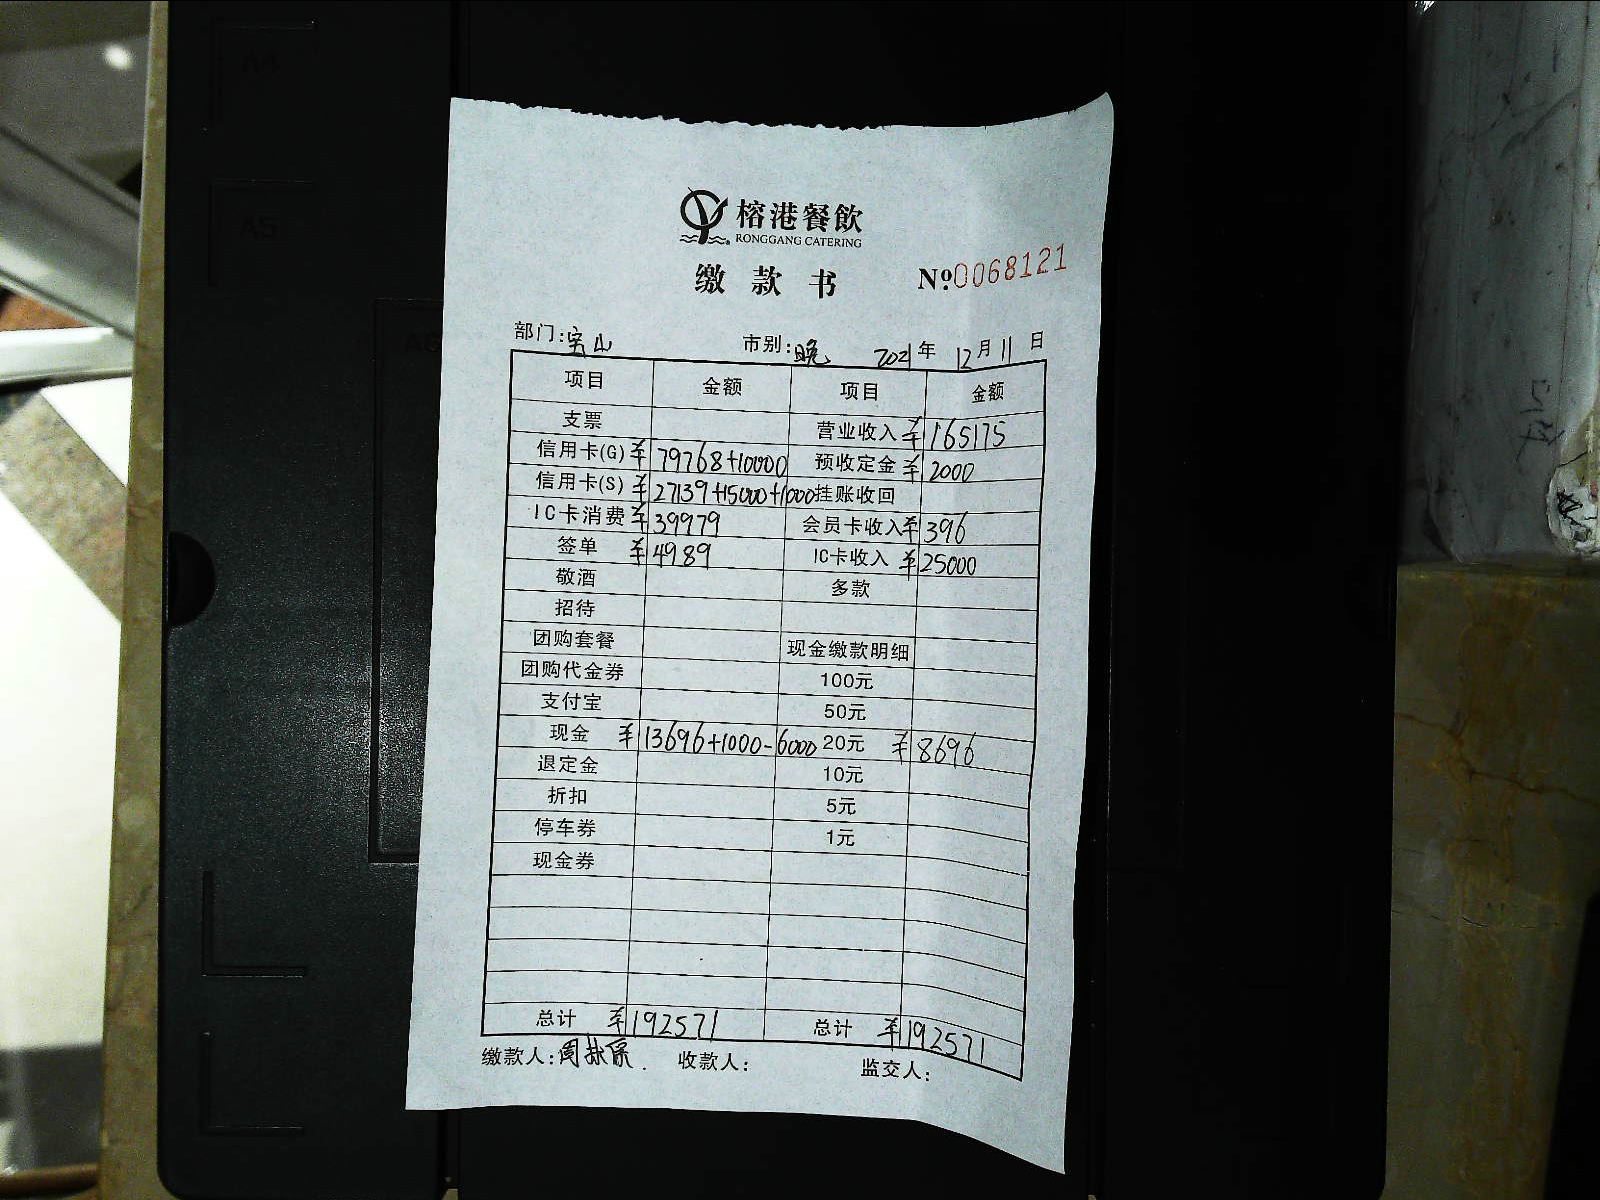 A4
A5
榕港餐飲
RONGGANG CATERING
缴款书 №0068121
部门:宝山 市别:晚 2021年12月11日
项目 金额 项目 金额
支票 营业收入 ¥165175
信用卡(G) ¥79768+10000 预收定金 ¥2000
信用卡(S) ¥27139+15000+1000 挂账收回
IC卡消费 ¥39979 会员卡收入 ¥396
签单 ¥4989 IC卡收入 ¥25000
敬酒 多款
招待
团购套餐 现金缴款明细
团购代金券 100元
支付宝 50元
现金 ¥13696+1000-6000 20元 ¥8696
退定金 10元
折扣 5元
停车券 1元
现金券
总计 ¥192571 总计 ¥192571
缴款人: 收款人: 监交人: